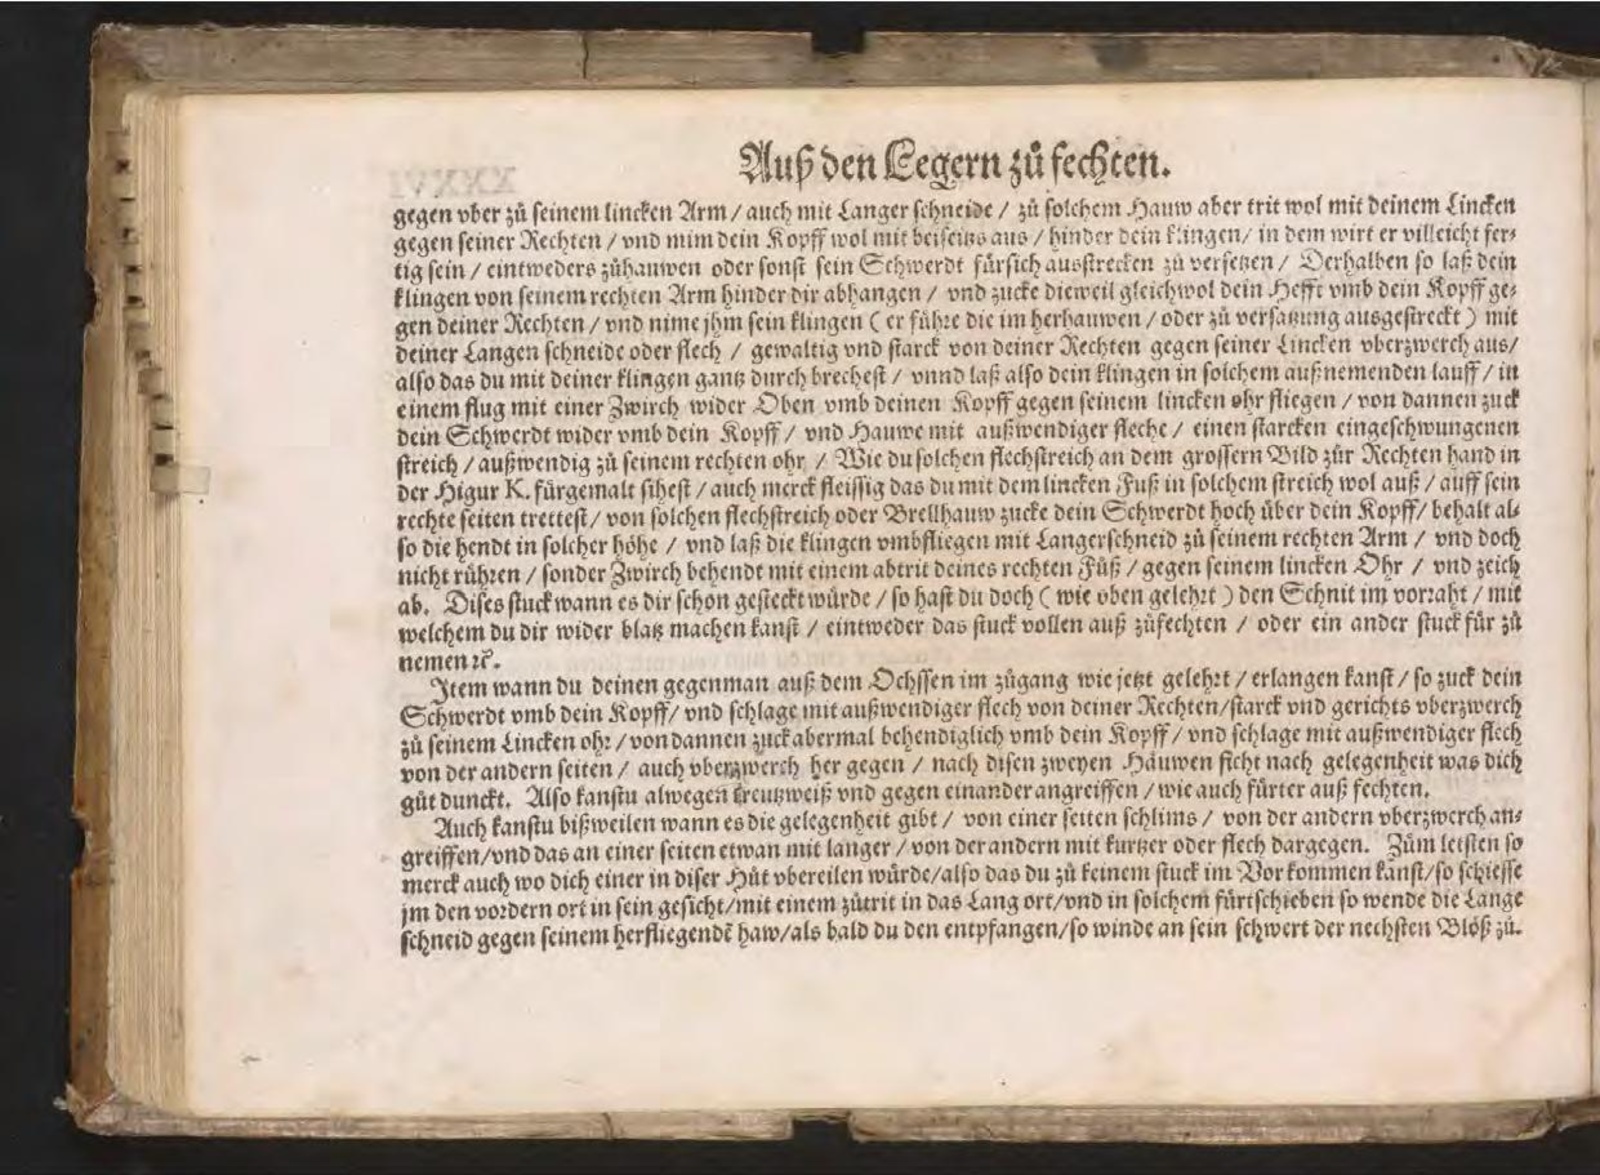 Auß den Legern zů fechten.
gegen vber zů seinem lincken Arm / auch mit Langer schneide / zů solchem Hauw aber trit wol mit deinem Lincken
gegen seiner Rechten / vnd mim dein Kopff wol mit beiseitzs aus / hinder dein klingen / in dem wirt er villeicht fer⸗
tig sein / eintweders zůhauwen oder sonst sein Schwerdt fürsich ausstrecken zů versetzen / Derhalben so laß dein
klingen von seinem rechten Arm hinder dir abhangen / vnd zucke dieweil gleichwol dein Hefft vmb dein Kopff ge⸗
gen deiner Rechten / vnd nime jhm sein klingen ( er führe die im herhauwen / oder zů versatzung ausgestreckt ) mit
deiner Langen schneide oder flech / gewaltig vnd starck von deiner Rechten gegen seiner Lincken vberzwerch aus /
also das du mit deiner klingen gantz durch brechest / vnnd laß also dein klingen in solchem außnemenden lauff / in
einem flug mit einer Zwirch wider Oben vmb deinen Kopff gegen seinem lincken ohr fliegen / von dannen zuck
dein Schwerdt wider vmb dein Kopff / vnd Hauwe mit außwendiger fleche / einen starcken eingeschwungenen
streich / außwendig zů seinem rechten ohr / Wie du solchen flechstreich an dem grossern Bild zůr Rechten hand in
der Higur K. fürgemalt sihest / auch merck fleissig das du mit dem lincken Fuß in solchem streich wol auß / auff sein
rechte seiten trettest / von solchen flechstreich oder Brellhauw zucke dein Schwerdt hoch über dein Kopff / behalt al⸗
so die hendt in solcher höhe / vnd laß die klingen vmbfliegen mit Langerschneid zů seinem rechten Arm / vnd doch
nicht rühren / sonder Zwirch behendt mit einem abtrit deines rechten Fůß / gegen seinem lincken Ohr / vnd zeich
ab. Dises stuck wann es dir schon gesteckt würde / so hast du doch ( wie oben gelehrt ) den Schnit im vorraht / mit
welchem du dir wider blatz machen kanst / eintweder das stuck vollen auß zůfechten / oder ein ander stuck für zů
nemen ꝛc̃.
Item wann du deinen gegenman auß dem Ochssen im zůgang wie jetzt gelehrt / erlangen kanst / so zuck dein
Schwerdt vmb dein Kopff / vnd schlage mit außwendiger flech von deiner Rechten / starck vnd gerichts vberzwerch
zů seinem Lincken ohr / von dannen zuck abermal behendiglich vmb dein Kopff / vnd schlage mit außwendiger flech
von der andern seiten / auch vberzwerch her gegen / nach disen zweyen Häuwen ficht nach gelegenheit was dich
gůt dunckt. Also kanstu alwegen kreutzweiß vnd gegen einander angreiffen / wie auch fürter auß fechten.
Auch kanstu bißweilen wann es die gelegenheit gibt / von einer seiten schlims / von der andern vberzwerch an⸗
greiffen / vnd das an einer seiten etwan mit langer / von der andern mit kurtzer oder flech dargegen. Zům letsten so
merck auch wo dich einer in diser Hůt vbereilen würde / also das du zů keinem stuck im Vor kommen kanst / so schiesse
jm den vordern ort in sein gesicht / mit einem zůtrit in das Lang ort / vnd in solchem fürtschieben so wende die Lange
schneid gegen seinem herfliegendẽ haw / als bald du den entpfangen / so winde an sein schwert der nechsten Blöß zů.